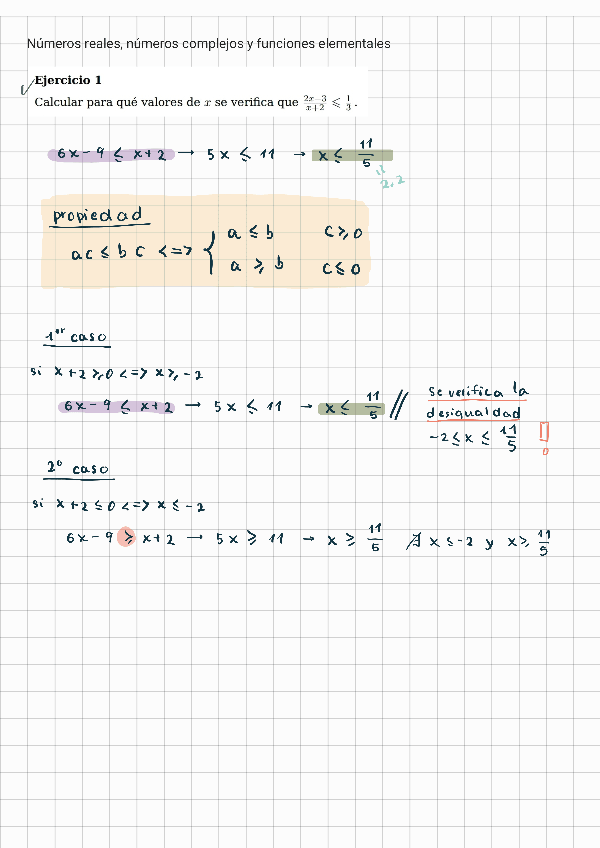 Números reales, números complejos y funciones elementales
Ejercicio 1
Calcular para qué valores de x se verifica que (2x−3)/(x+2) ⩽ 1/3.
6x − 9 ≤ x + 2 → 5x ≤ 11 → x ≤ 11/5
= 2,2
propiedad
ac ≤ bc <=> { a ≤ b c ≥ 0
a ≥ b c ≤ 0
1er caso
si x + 2 ≥ 0 <=> x ≥ -2
6x − 9 ≤ x + 2 → 5x ≤ 11 → x ≤ 11/5 //
se verifica la
desigualdad
-2 ≤ x ≤ 11/5 !
2º caso
si x + 2 ≤ 0 <=> x ≤ -2
6x − 9 ≥ x + 2 → 5x ≥ 11 → x ≥ 11/5 ∄ x ≤ -2 y x ≥ 11/5